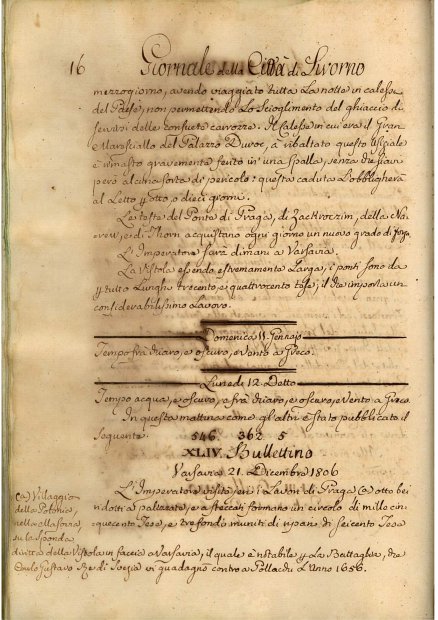 16 Giornale della Città di Livorno
mezzogiorno, avendo viaggiato tutta La notte in calesse
del Paese, non permettendo Lo Scioglimento del ghiaccio di
servirsi delle consuete carrozze. Il Calesse in cui era il Gran
Maresciallo del Palazzo Duroc, à ribaltato questo Ufiziale
è rimasto gravemente ferito in una spalla, senza che sian
però alcuna sorta di pericolo: questa caduta L'obbligherà
al Letto otto, o dieci giorni.
Le teste del Ponte di Praga, di Zackroczim, della Na=
rew, e di Thorn acquistano ogni giorno un nuovo grado di forza.
L'Imperatore sarà dimani a Varsavia.
La Vistola essendo estremamente Larga, i ponti sono da
tutto Lunghi trecento, e quattrocento tese; il che importa un
considerabilissimo Lavoro.
Domenica 11. Gennajo
Tempo frà chiaro, e oscuro, e Vento a Greco.
Lunedì 12. Detto
Tempo acqua, e oscuro, e frà chiaro, e oscuro, e Vento a Greco.
In questa mattina come gli altri è stato pubblicato il
Seguente. 546. 362 5
XLIV. Bullettino
Varsavia 21. Dicembre 1806
L'Imperatore visitò jeri i Lavori di Praga (a) otto bei
ridotti a palizzate, e a steccati formano un circolo di mille cin=
quecento Tese, e tre fondo muniti di un pian di seicento Tese
(a) Villaggio
della Polonia,
nella
su la sponda
diritta della Vistola in faccia a Varsavia, il quale è notabile La Battaglia, che
Carlo Gustavo Re di Svezia vi guadagnò contro a Pollacchi L'Anno 1656.